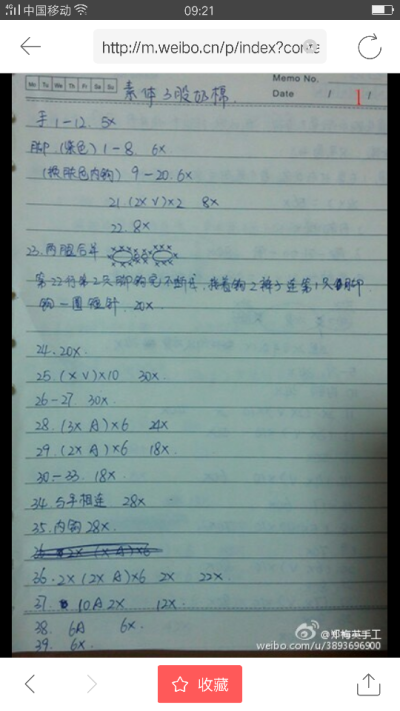 中国移动
09:21
http://m.weibo.cn/p/index?conta
Mo Tu We Th Fr Sa Su
Memo No.
Date / /
素体3股奶棉.
手1-12. 5x
脚(染色)1-8. 6x
(换肤色内钩)9-20. 6x
21 (2x V)×2 8x
22. 8x
23. 两腿合并
第22行第2只脚钩完不断线, 接着钩2辫子连第1只脚
钩一圈短针. 20x
24. 20x.
25. (x V)×10 30x
26-27 30x
28. (3x A)×6 24x
29. (2x A)×6 18x
30-33. 18x
34. 与手相连 28x
35. 内钩28x.
36. 2x (2x A)×6 2x 22x
37. 10A 2x 12x.
38. 6A 6x.
39. 6x.
@郑梅英手工
weibo.com/u/3893696900
收藏